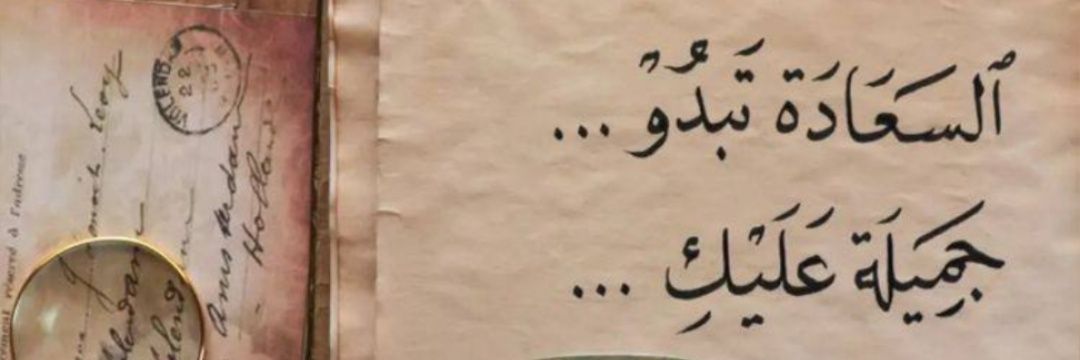 ٱلسَعَادَة تَبدُو ...
جَمِيَلَة عَلَيْكِ ...
VOLENDAM
22
Amsterdam
Holland